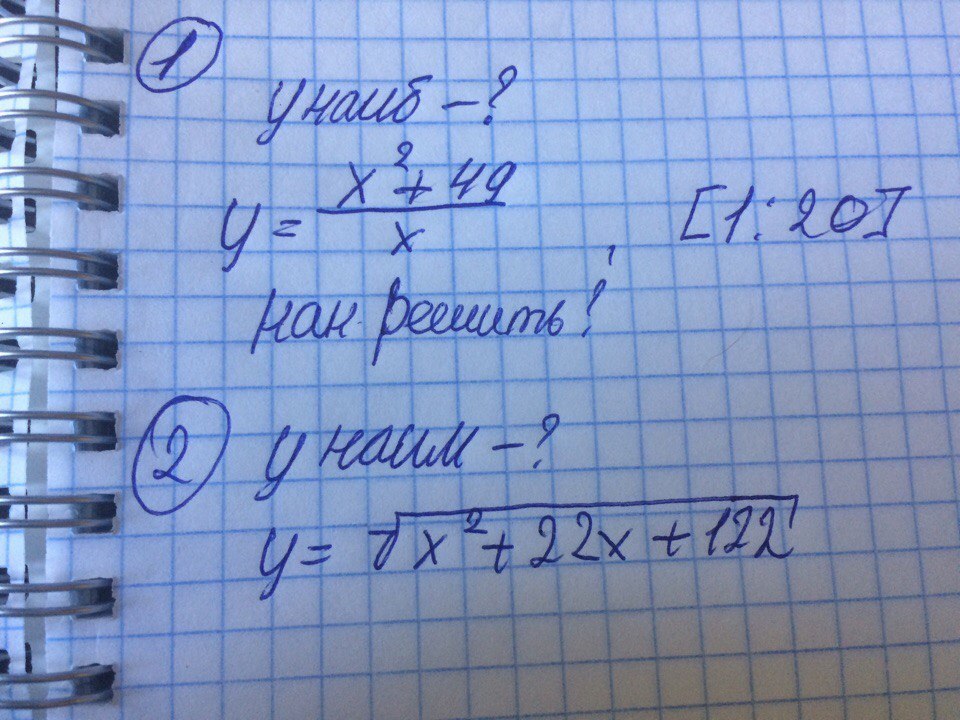 1
y наиб – ?
y = (x² + 49) / x , [1:20]
как решить?
2
y наим – ?
y = √(x² + 22x + 122)